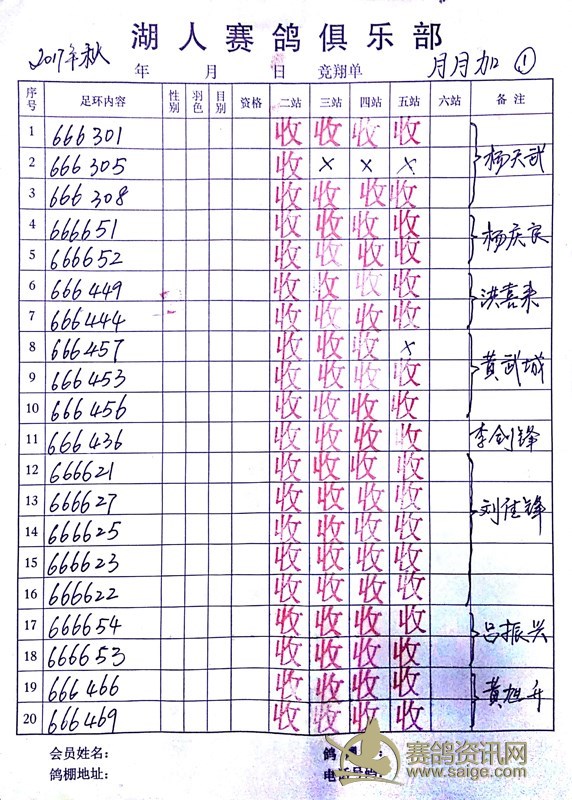 湖人赛鸽俱乐部
2017年秋 年 月 日 竞翔单 月月加 ①
序号 足环内容 性别 羽色 目别 资格 二站 三站 四站 五站 六站 备注
1 666301 收 收 收 收
2 666305 收 × × × 杨天武
3 666308 收 收 收 收
4 666651 收 收 收 收 杨庆良
5 666652 收 收 收 收
6 666449 收 收 收 收 洪喜来
7 666444 收 收 收 收
8 666457 收 收 收 × 黄武城
9 666453 收 收 收 收
10 666456 收 收 收 收
11 666436 收 收 收 收 李剑锋
12 666621 收 收 收 收
13 666627 收 收 收 收 刘佳锋
14 666625 收 收 收 收
15 666623 收 收 收 收
16 666622 收 收 收 收
17 666654 收 收 收 收 吕振兴
18 666653 收 收 收 收
19 666466 收 收 收 收 黄旭升
20 666469 收 收 收 收
会员姓名: 鸽棚号:
鸽棚地址: 电话号码:
赛鸽资讯网
www.saige.com